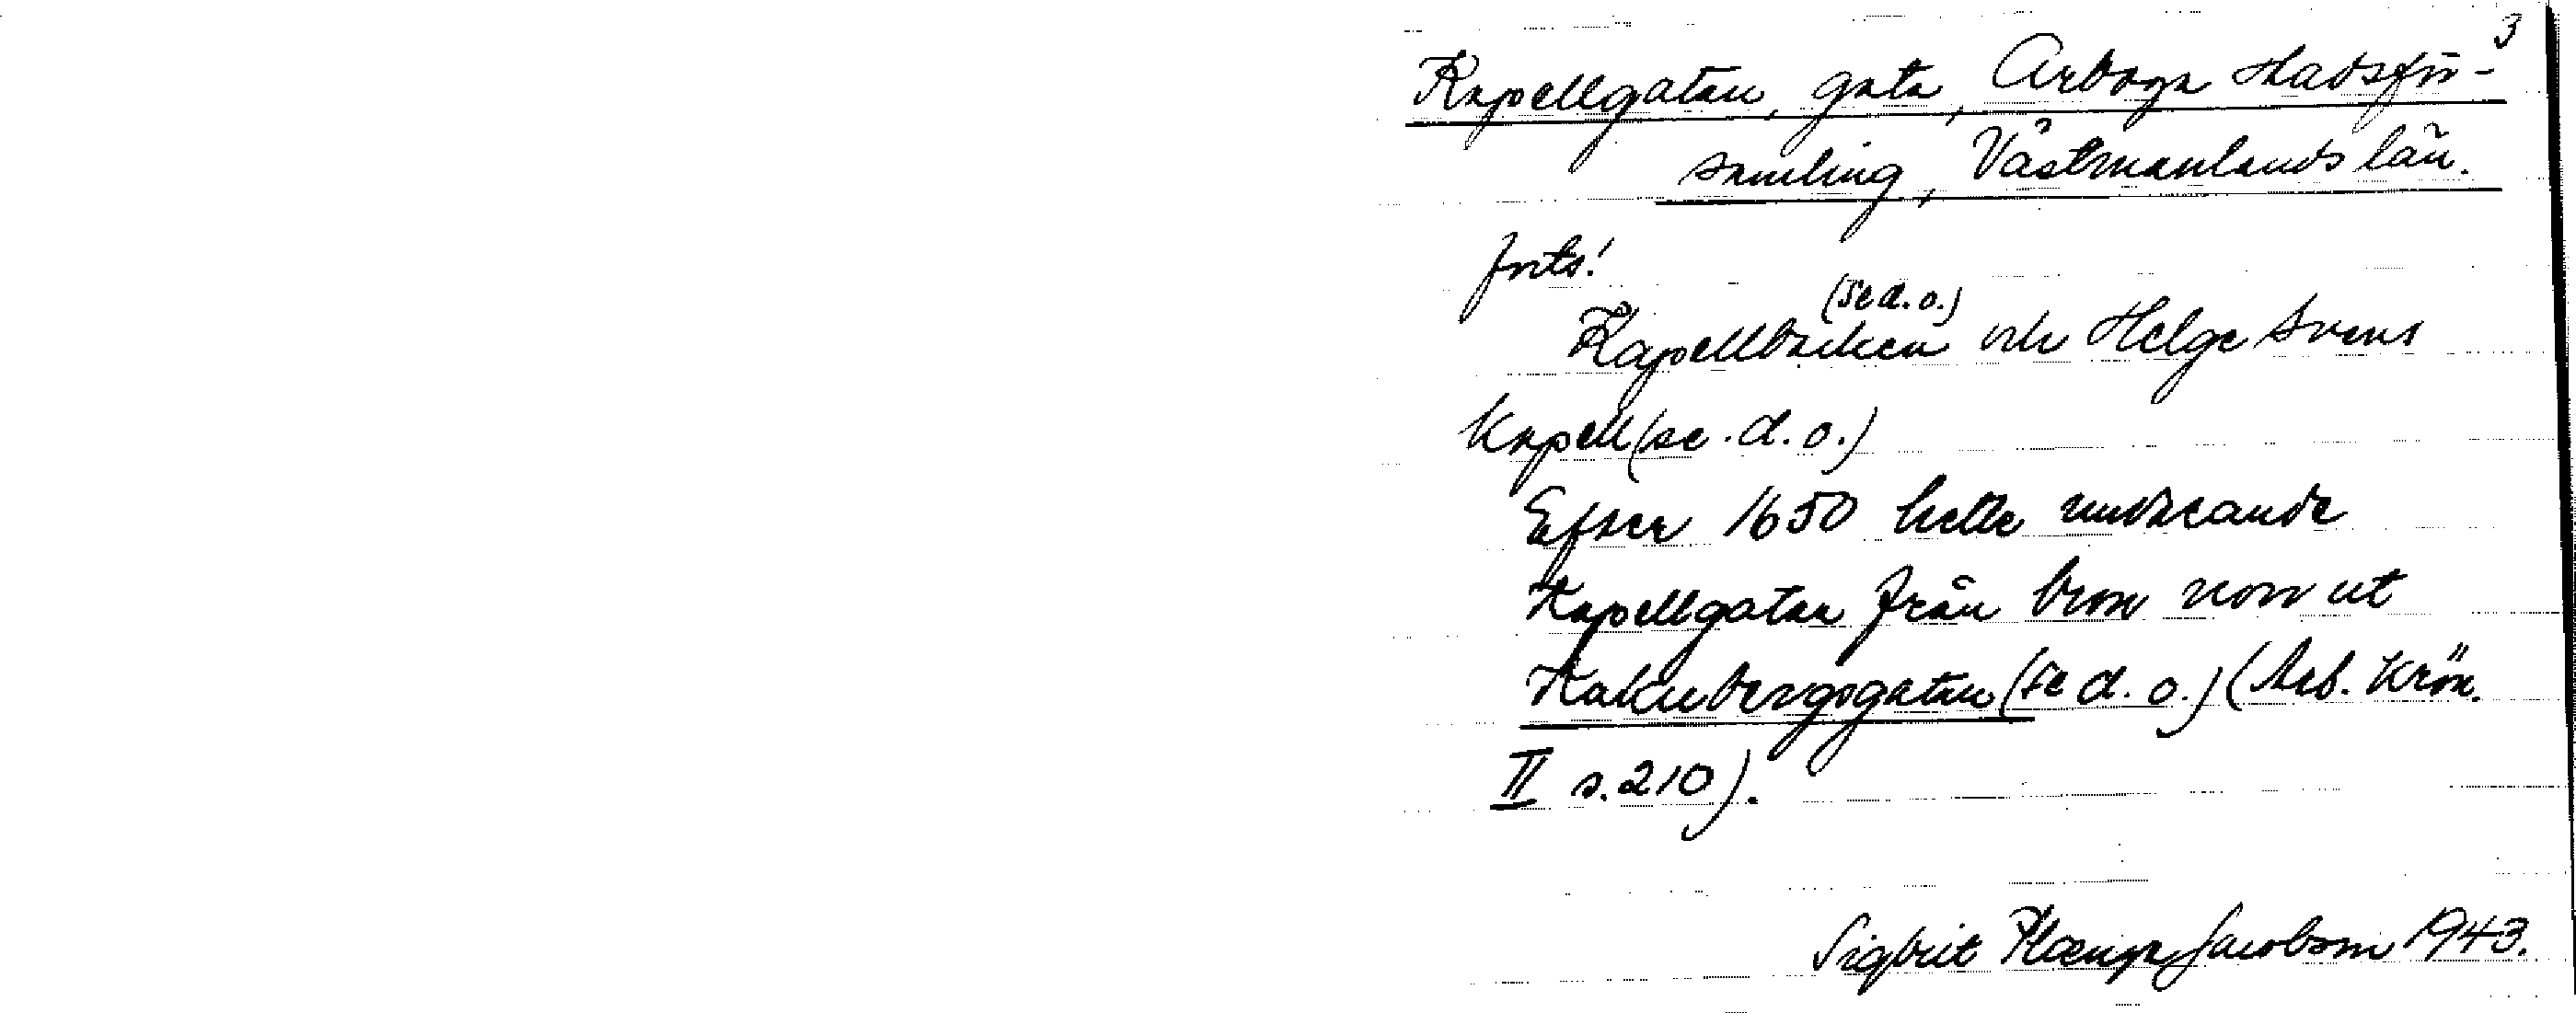 3
Kapellgatan, gata, Arboga stadsför-
samling, Västmanlands län.
forts!
(se d. o.)
Kapellbacken och Helge Svens
Kapell (se. d. o.)
Efter 1650 hette nuvarande
Kapellgatan från bron norr ut
Kakubergsgatan (se d. o.) (Arb. Krön.
II s. 210).
Sigbrit Jacobson 1943.